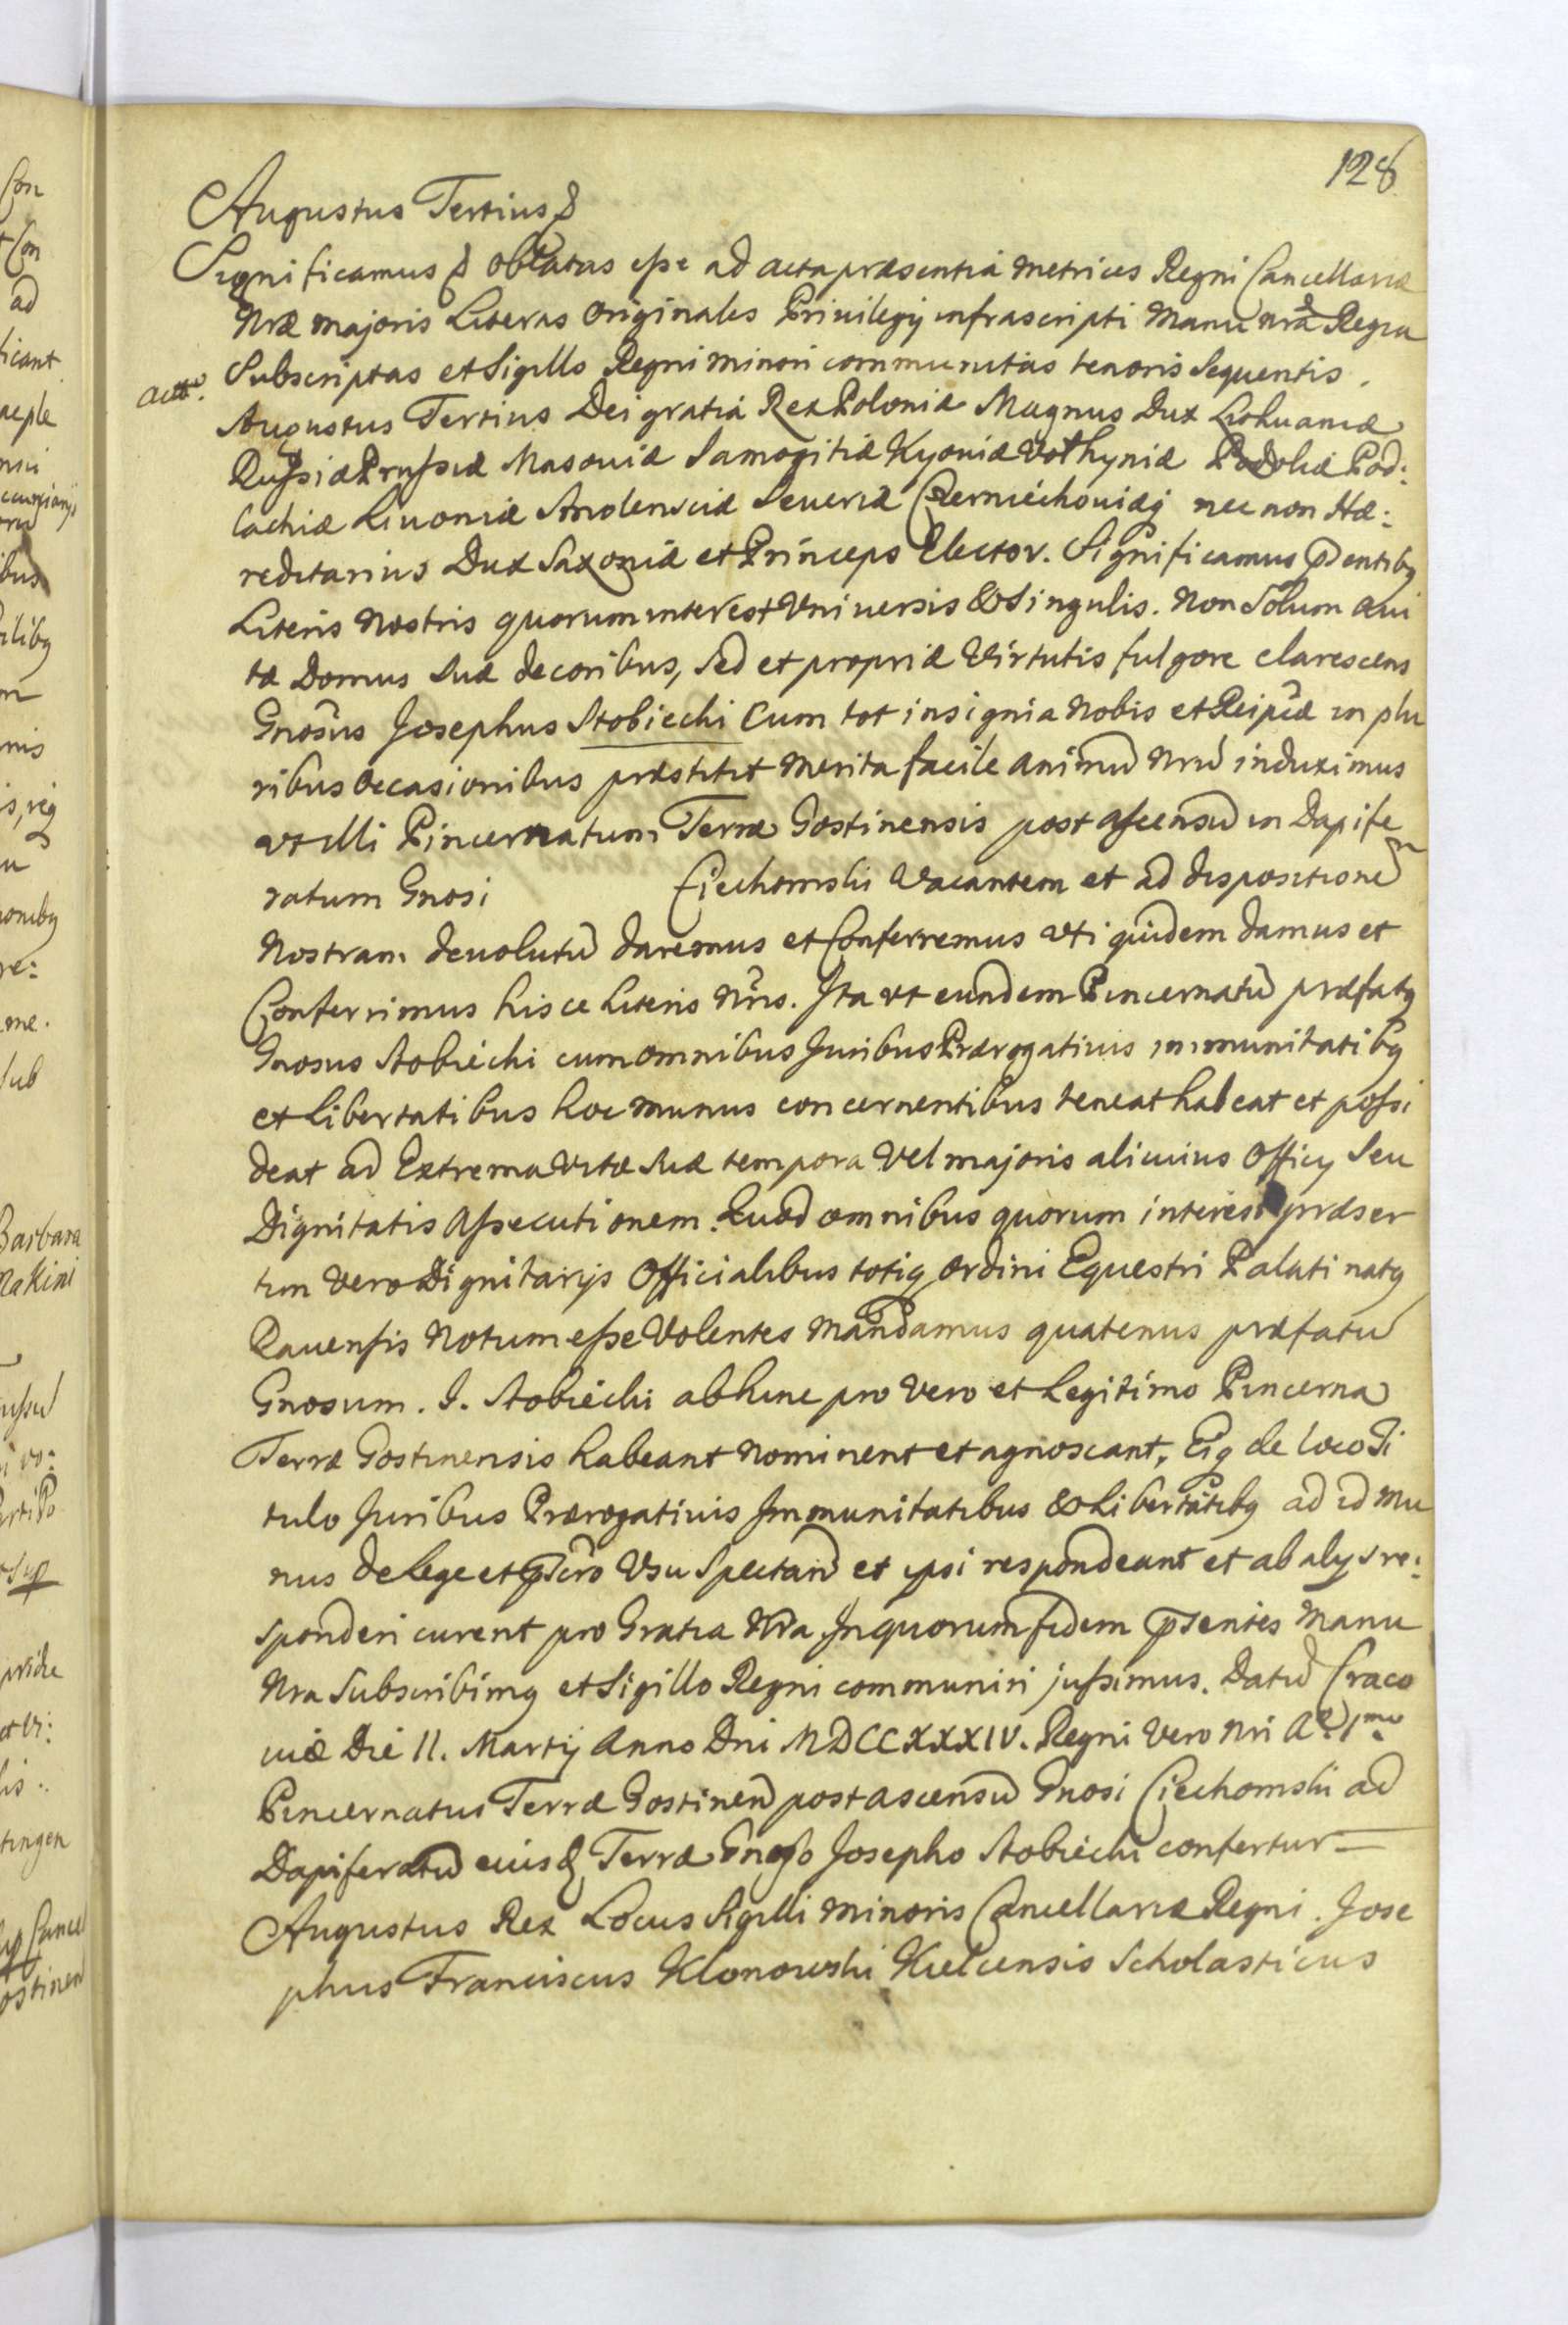 128
Augustus Tertius &
Significamus & oblatas esse ad acta præsentia Metrices Regni Cancellariæ
Nræ majoris Literas Originales Privilegij infrascripti Manu nrâ Regia
Subscriptas et Sigillo Regni minori communitas tenoris Sequentis.
Augustus Tertius Dei gratiâ Rex Poloniæ Magnus Dux Lithuaniæ
Russiæ Prussiæ Masoviæ Samogitiæ Kyoviæ Volhyniæ Podoliæ Pod:
lachiæ Livoniæ Smolensciæ Severiæ Czerniechoviæq nec non Hæ:
reditarius Dux Saxoniæ et Princeps Elector. Significamus psentibq
Literis Nostris quorum interest Vniversis & Singulis. Non Solum avi
tæ Domus Suæ decoribus, Sed et propriæ Virtutis fulgore clarescens
Gnosus Josephus Stobiecki Cum tot insignia Nobis et Reipcæ in plu
ribus Occasionibus præstitit Merita facile animū Nrū induximus
vt illi Pincernatum Terræ Gostinensis post ascensū in Dapife
ratum Gnosi Ciechomski Vacantem et ad dispositionē
Nostram devolutū daremus et Conferremus vti quidem damus et
Conferrimus hisce Literis Nris. Ita vt eundem Pincernatū præfatq
Gnosus Stobiecki cum omnibus Juribus Prærogativis immunitatibq
et Libertatibus hoc munus concernentibus teneat habeat et possi
deat ad Extrema Vitæ Suæ tempora Vel majoris alicuius Officij Seu
Dignitatis Assecutionem. Quod omnibus quorum interest præser
tim Vero Dignitarijs Officialibus totiq Ordini Equestri Palatinatq
Ravensis Notum esse Volentes Mandamus quatenus præfatū
Gnosum. J. Stobiecki abhinc pro Vero et Legitimo Pincerna
Terræ Gostinensis habeant Nominent et agnoscant, Eiq de loco Ti
tulo Juribus Prærogativis Immunitatibus & Libertatibq ad id Mu
nus de Lege et Vsu Spectan et ipsi respondeant et ab alijs re:
sponderi curent pro Gratia Nra In quorum fidem psentes Manu
Nra Subscribimq et Sigillo Regni communiri jussimus. Datū Craco
viæ Die 11. Martij Anno Dni MDCCXXXIV. Regni Vero Nri Ao 1mo
Pincernatus Terræ Gostinen post ascensū Gnosi Ciechomski ad
Dapiferatū eiusd Terræ Gnoso Josepho Stobiecki confertur
Augustus Rex Locus Sigilli Minoris Cancellariæ Regni. Jose
phus Franciscus Klonowski Kielcensis Scholasticus